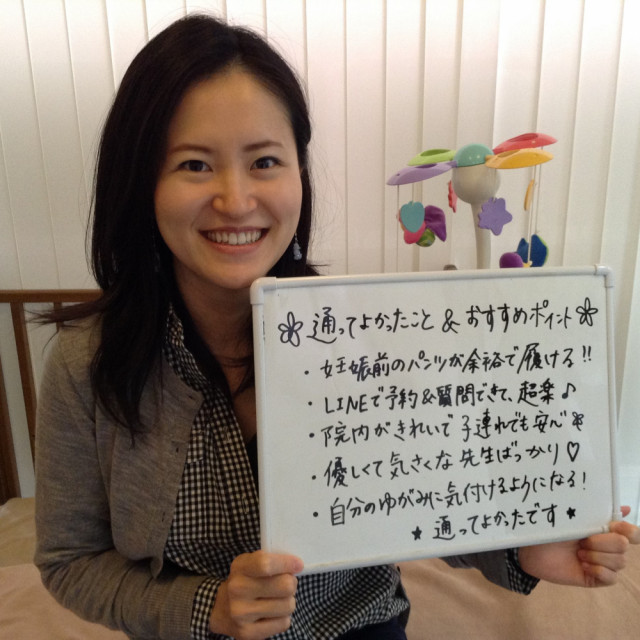 通ってよかったこと & おすすめポイント
・妊娠前のパンツが余裕で履ける!!
・LINEで予約&質問できて、超楽♪
・院内がきれいで子連れでも安心
・優しくて気さくな先生ばっかり♡
・自分のゆがみに気付けるようになる!
★ 通ってよかったです ★